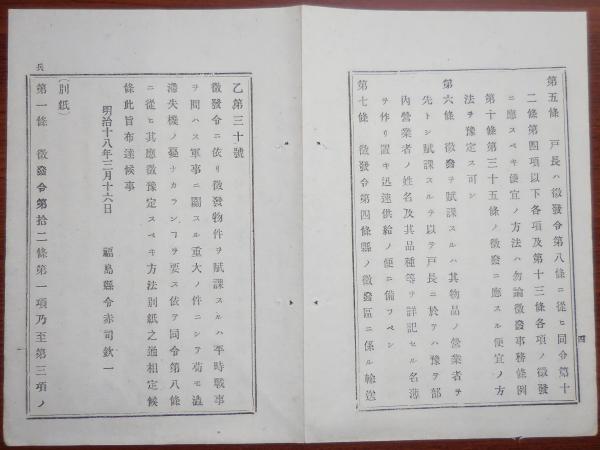 四
第五條　戸長ハ徵發令第八條ニ從ヒ同令第十
二條第四項以下各項及第十三條各項ノ徵發
ニ應スベキ便宜ノ方法ハ勿論徵發事務條例
第十條第三十五條ノ徵發ニ應スル便宜ノ方
法ヲ豫定ス可シ
第六條　徵發ヲ賦課スルハ其物品ノ營業者ヲ
先トシ賦課スルヲ以テ戸長ニ於テハ豫テ部
內營業者ノ姓名及其品種等ヲ詳記セル名薄
ヲ作リ置キ迅速供給ノ便ニ備フベシ
第七條　徵發令第四條縣ノ徵發區ニ係ル輸送
乙第三十號
徵發令ニ依リ徵發物件ヲ賦課スルハ平時戰事
ヲ問ハス軍事ニ關スル重大ノ件ニシテ苟モ澁
滯失機ノ憂ナカランヿヲ要ス依テ同令第八條
ニ從ヒ其應徵豫定スベキ方法別紙之通相定候
條此旨布達候事
明治十八年三月十六日
福島縣令赤司欽一
(別紙)
第一條　徵發令第拾二條第一項乃至第三項ノ
兵